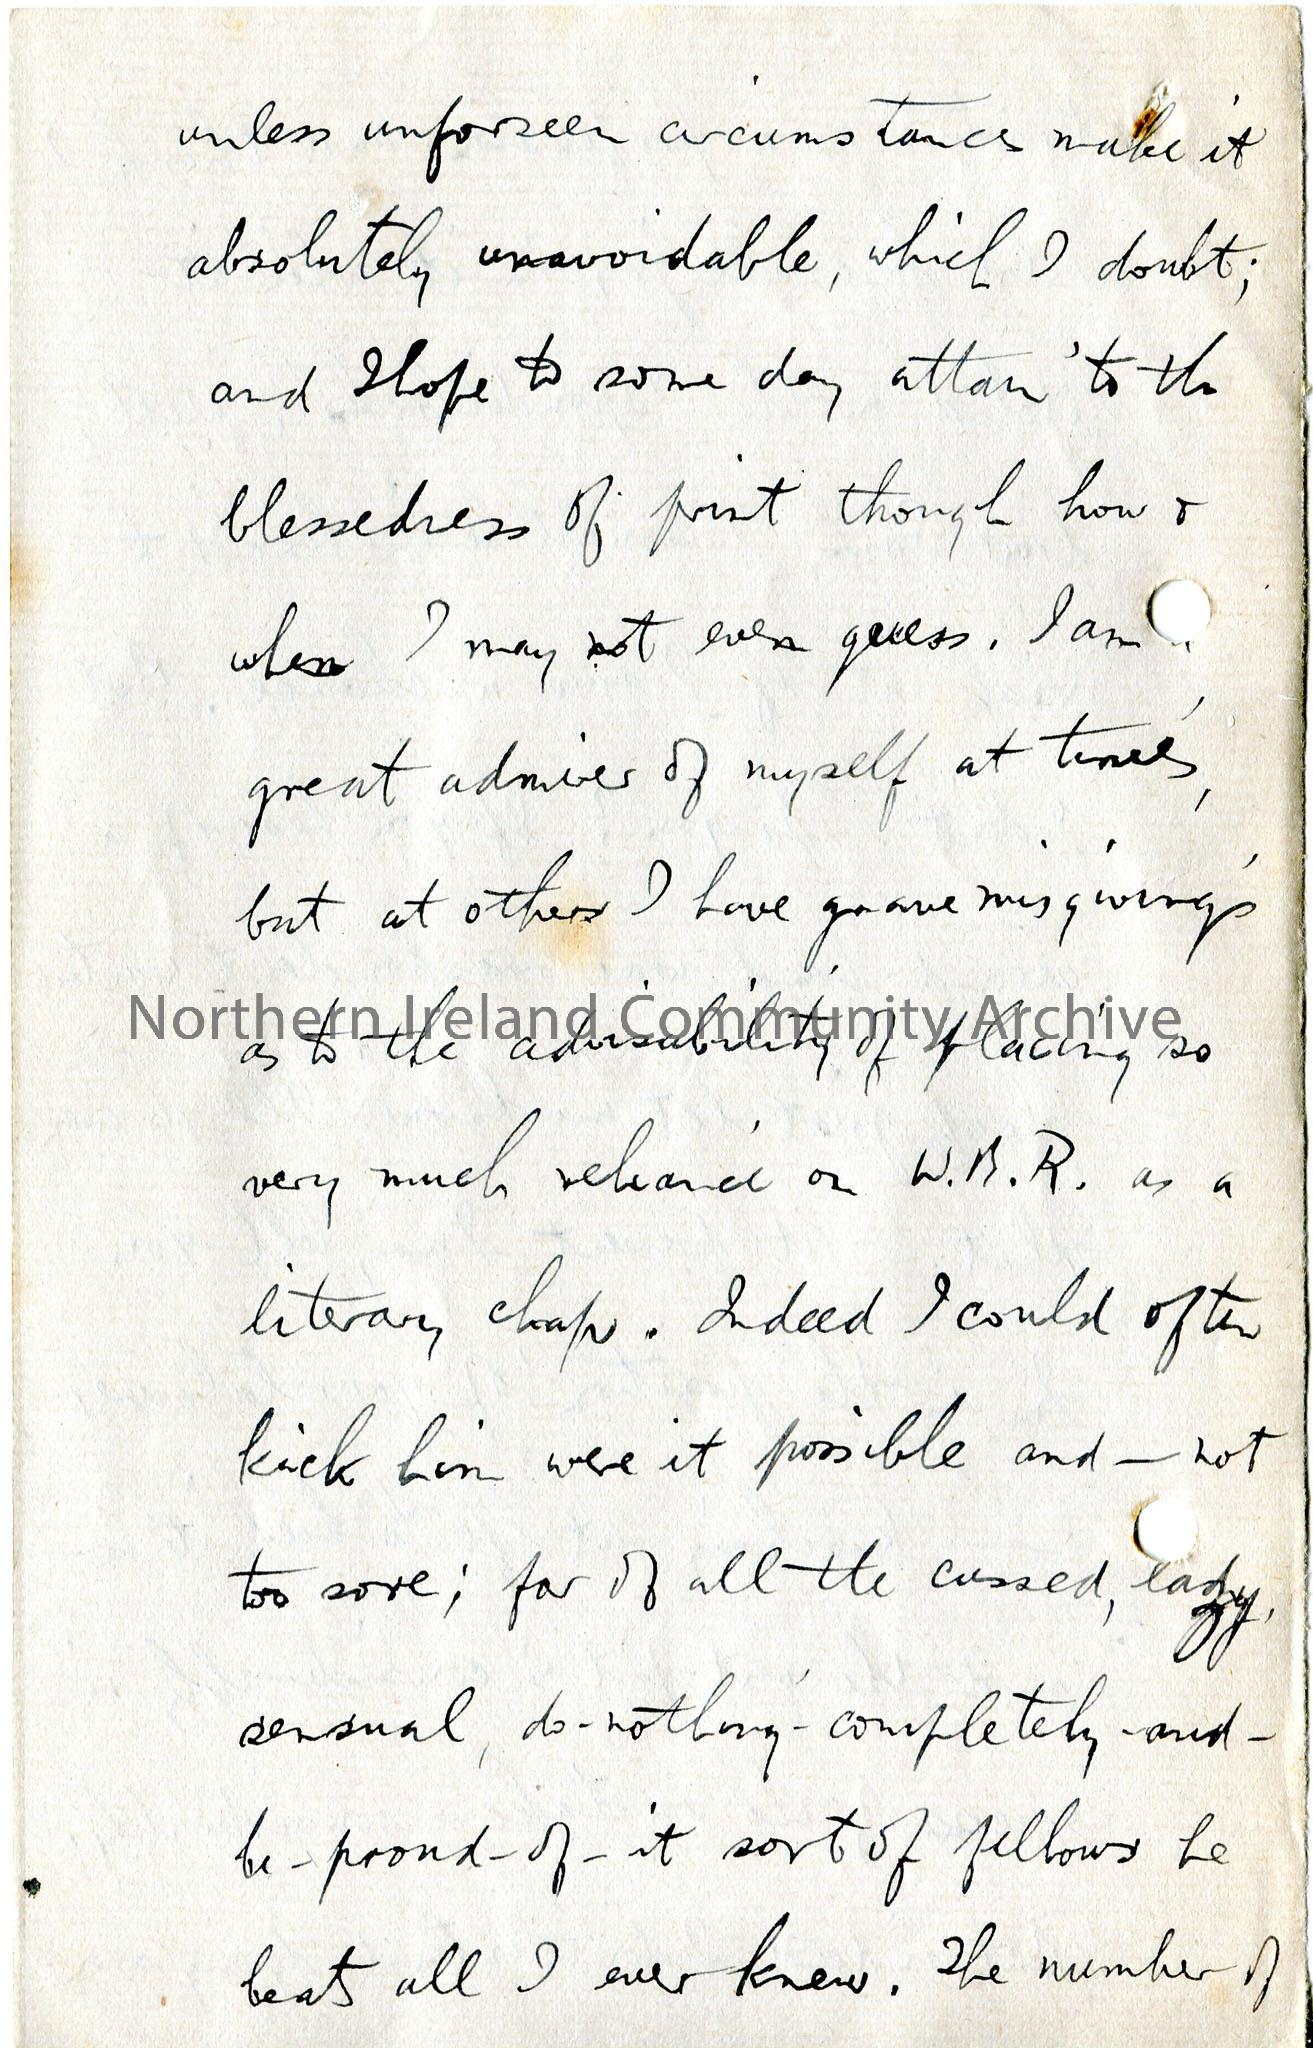 unless unforseen circumstances make it
absolutely unavoidable, which I doubt;
and I hope to some day attain to the
blessedness of print though how &
when I may not even guess. I am a
great admirer of myself at times,
but at others I have grave misgivings
Northern Ireland Community Archive
as to the advisability of placing so
very much reliance on W.B.R. as a
literary chap. Indeed I could often
kick him were it possible and — not
too sore; for of all the cussed, lazy,
sensual, do-nothing-completely-and-
be-proud-of-it sort of fellows he
beats all I ever knew. The number of